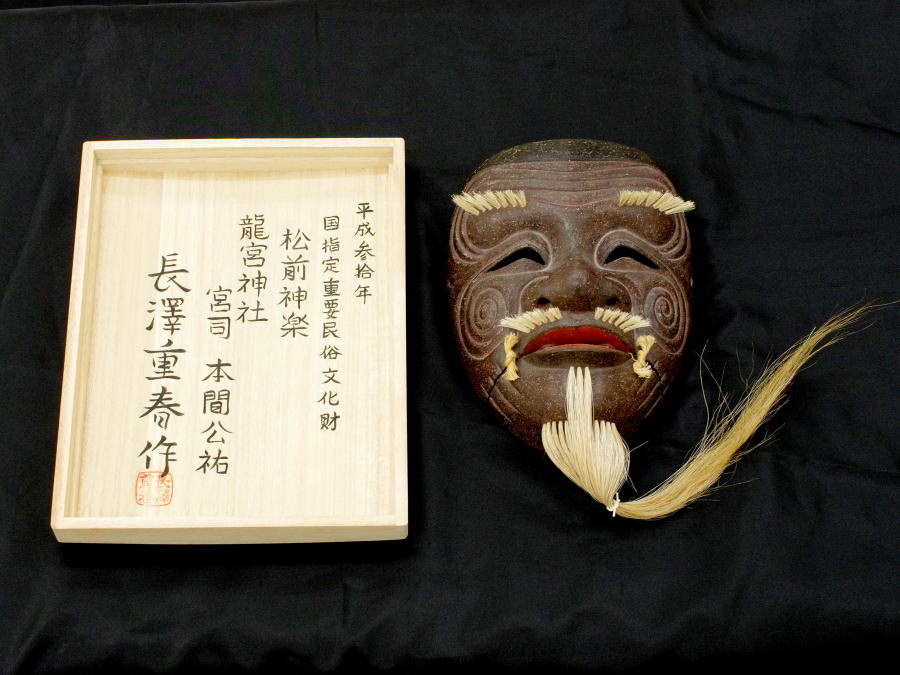 平成参拾年
国指定重要民俗文化財
松前神楽
龍宮神社
宮司 本間公祐
長澤重春作